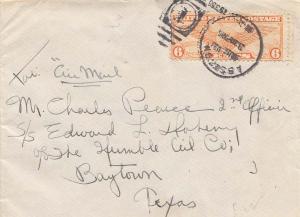 UNITED STATES POSTAGE
6 6
Via: "Air Mail"
Mr. Charles Pearce 2nd Officer
S/S Edward L. Doheny
of The Humble Oil Co;
Baytown
Texas